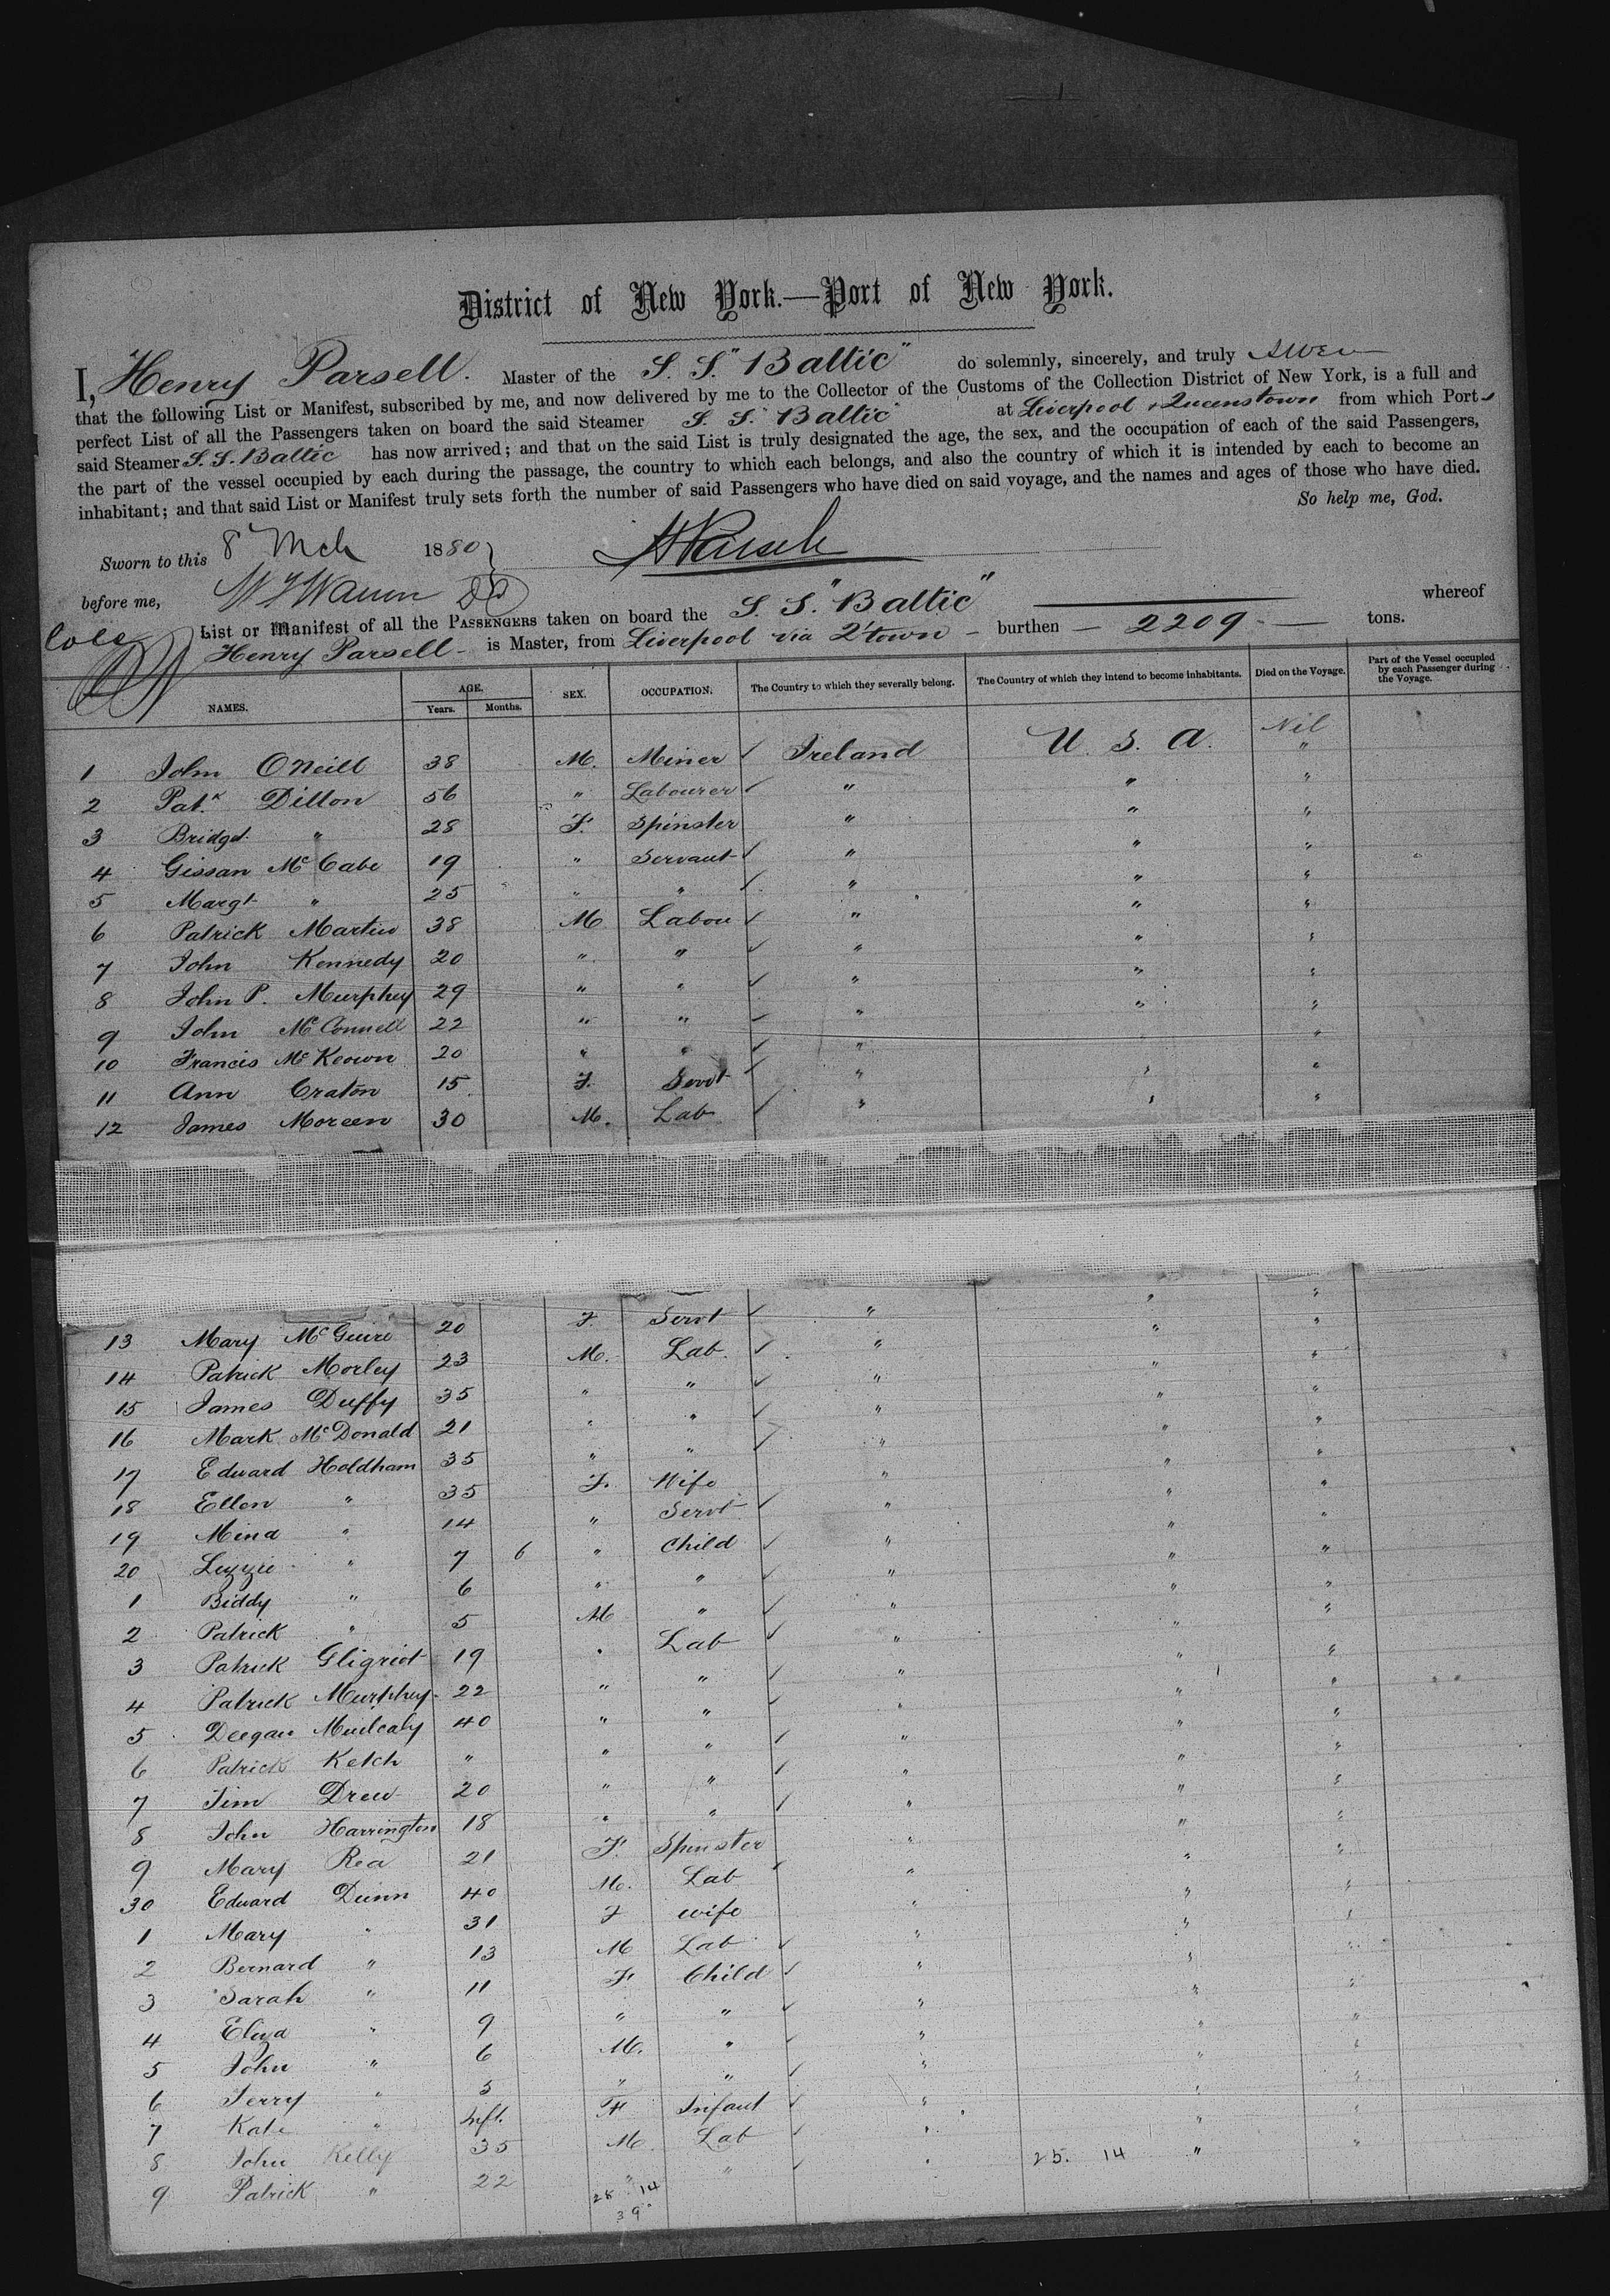 District of New York.—Port of New York.
I, Henry Parsell. Master of the S. S. "Baltic" do solemnly, sincerely, and truly swear
that the following List or Manifest, subscribed by me, and now delivered by me to the Collector of the Customs of the Collection District of New York, is a full and
perfect List of all the Passengers taken on board the said Steamer S. S. Baltic at Liverpool & Queenstown from which Ports
said Steamer S. S. Baltic has now arrived; and that on the said List is truly designated the age, the sex, and the occupation of each of the said Passengers,
the part of the vessel occupied by each during the passage, the country to which each belongs, and also the country of which it is intended by each to become an
inhabitant; and that said List or Manifest truly sets forth the number of said Passengers who have died on said voyage, and the names and ages of those who have died.
So help me, God.
Sworn to this 8 Mch 1880 } H Parsell
before me,
List or Manifest of all the PASSENGERS taken on board the S. S. "Baltic" whereof
Henry Parsell - is Master, from Liverpool via Q'town - burthen — 2209 — tons.
NAMES. AGE. Years. Months. SEX. OCCUPATION. The Country to which they severally belong. The Country of which they intend to become inhabitants. Died on the Voyage. Part of the Vessel occupied by each Passenger during the Voyage.
1 John O'Neill 38 M. Miner ✓ Ireland U. S. A. Nil
2 Pat.k Dillon 56 " Labourer ✓ " " "
3 Bridgt " 28 F. Spinster " " "
4 Gissan McCabe 19 " Servant ✓ " " "
5 Margt " 25 " " ✓ " " "
6 Patrick Martin 38 M Labou ✓ " " "
7 John Kennedy 20 " " ✓ " " "
8 John P. Murphey 29 " " ✓ " " "
9 John McConnell 22 " " ✓ " " "
10 Francis McKeown 20 " " ✓ " "
11 Ann Craton 15 F. Servt ✓ " " "
12 James Moreen 30 M. Lab ✓ " " "
13 Mary McGuire 20 F. Servt ✓ " " "
14 Patrick Morley 23 M. Lab. ✓ " " "
15 James Duffy 35 " " ✓ " " "
16 Mark McDonald 21 " " ✓ " " "
17 Edward Holdham 35 " " ✓ " " "
18 Ellen " 35 F. Wife " " "
19 Mina " 14 " Servt ✓ " " "
20 Lizzie " 7 6 " Child ✓ " " "
1 Biddy " 6 " " ✓ " " "
2 Patrick " 5 M " ✓ " " "
3 Patrick Gligriot 19 " Lab ✓ " " "
4 Patrick Murphey 22 " " ✓ " " "
5 Deegan Mulcaly 40 " " ✓ " " "
6 Patrick Ketch " " " ✓ " " "
7 Tim Drew 20 " " ✓ " " "
8 John Harrington 18 " " ✓ " " "
9 Mary Rea 21 F. Spinster " " "
30 Edward Dunn 40 M. Lab ✓ " " "
1 Mary " 31 F wife " " "
2 Bernard " 13 M Lab ✓ " " "
3 Sarah " 11 F. Child ✓ " " "
4 Eliza " 9 " " ✓ " " "
5 John " 6 M. " ✓ " " "
6 Terry " 5 " " ✓ " " "
7 Kate " Inft. F Infant ✓ " " "
8 John Kelly 35 M. Lab ✓ " " "
9 Patrick " 22 " " ✓ " 25. 14 " "
28 14
39